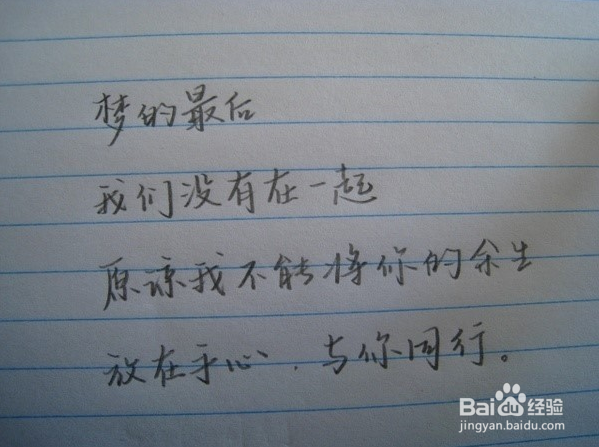 梦的最后
我们没有在一起
原谅我不能将你的余生
放在手心、与你同行。
Bai 经验
jingyan.baidu.com